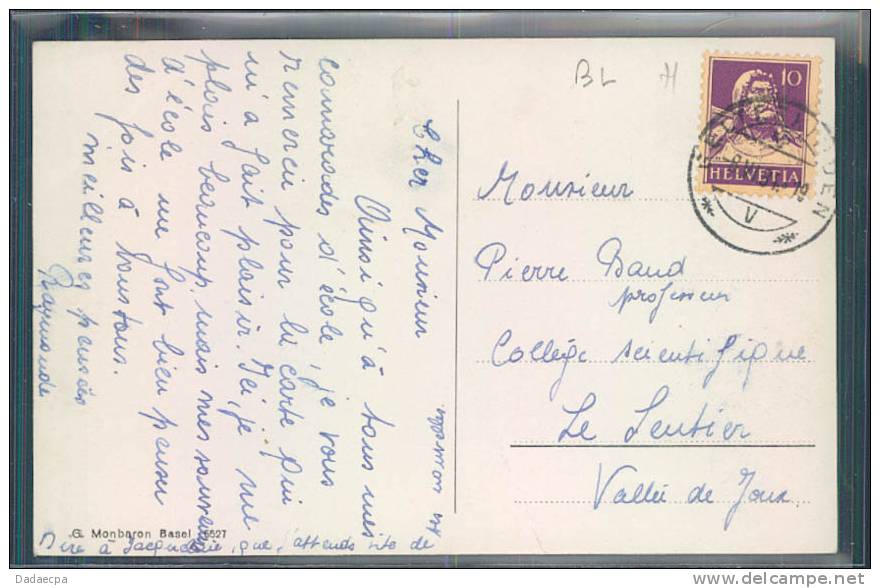 Cher Monsieur
Ainsi qu'à tous mes
camarades d'école, je vous
remercie pour la carte qui
m'a fait plaisir. Ici, je me
plais beaucoup, mais mes souvenirs
d'école me font bien penser
des fois à vous tous.
meilleures pensées
Raymonde
Dire à Jacqueline, que j'attends vite de
ses nouvelles.
BL H
10
HELVETIA
V
Monsieur
Pierre Baud
professeur
Collège scientifique
Le Sentier
Vallée de Joux
G. Monbaron Basel 6527
Dadaecpa
www.delcampe.net